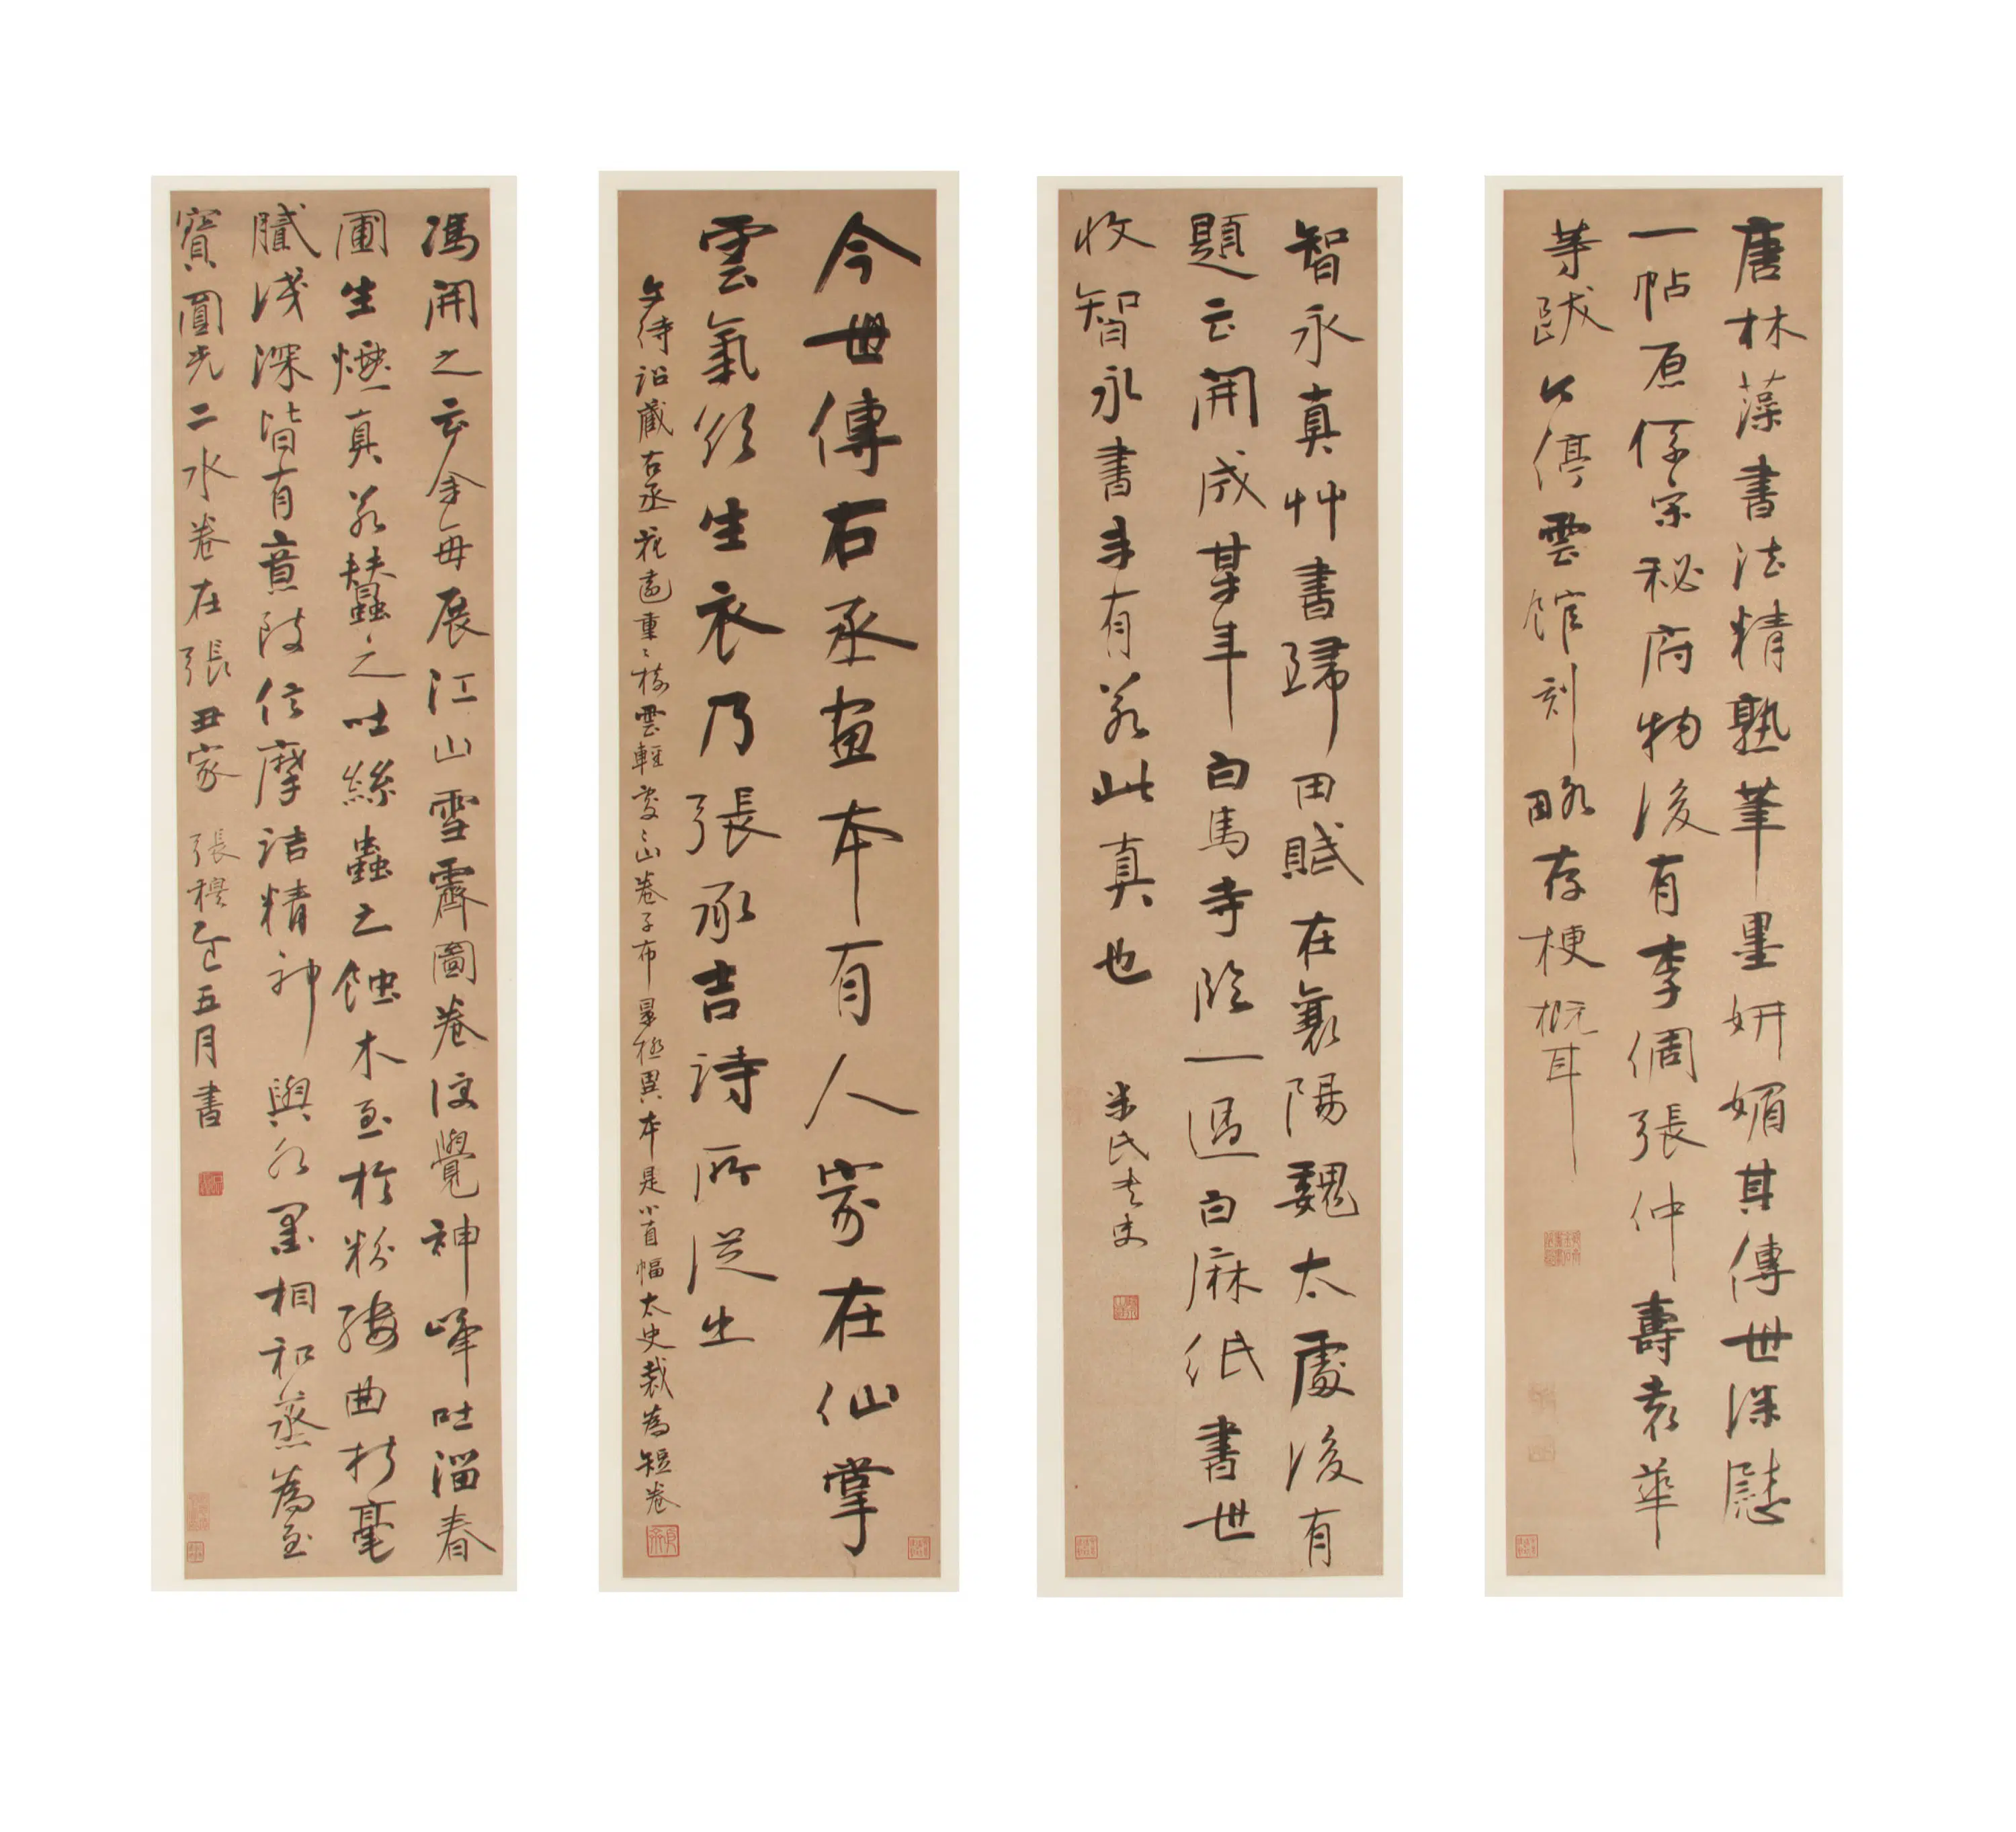 唐林藻書法精熟筆墨妍媚其傳世深慰
一帖原係宋秘府物後有李倜張仲壽袁華
等跋今停雲館刻略存梗概耳
智永真艸書歸田賦在襄陽魏太處後有
題云開成某年白馬寺臨一過白麻紙書世
收智永書未有若此真也
米氏書史
今世傳右丞畫本有人家在仙掌
雲氣欲生衣乃張承吉詩所從出
文待詔藏右丞花遠重重樹雲輕處處山卷子布景極異本是小直幅太史裁為短卷
馮開之云余每展江山雪霽圖卷便覺神峰吐溜春
圃生煙真若蠶之吐絲蟲之蝕木至於粉縷曲折毫
膩淺深皆有意致信摩詰精神與水墨相和蒸為至
寶圓光二水卷在張丑家 張穆 五月書